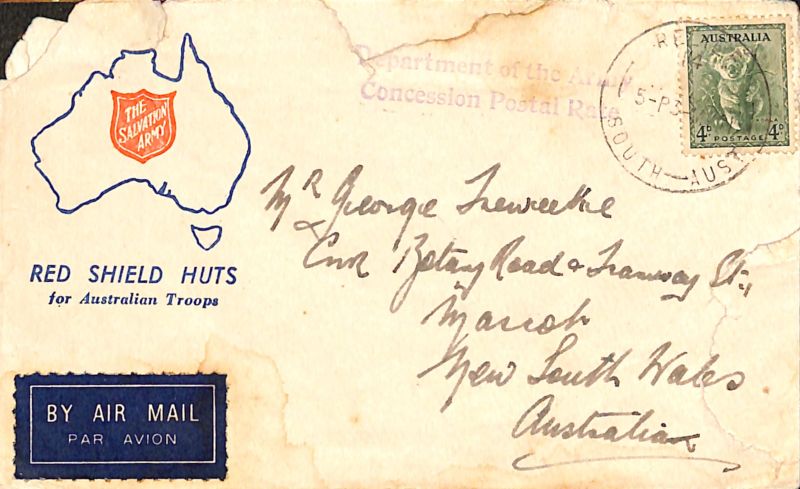 THE
SALVATION
ARMY
RED SHIELD HUTS
for Australian Troops
Department of the Army
Concession Postal Rate
RE
5-P3
SOUTH-AUS
AUSTRALIA
KOALA
4D POSTAGE 4D
Mr George
Cnr Botany Road & Tramway St.,
Mascot
New South Wales
Australia
BY AIR MAIL
PAR AVION